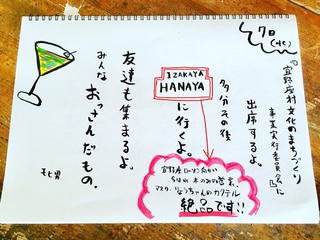 7日(火)
『宜野座村文化のまちづくり
事業実行委員会』に
出席するよ。
多分その後
IZAKAYA
HANAYA
に行くよ。
友達も集まるよ。
みんな
おっさんだもの。
宜野座ローソン向かい
マスターりょうちゃんのカクテル
絶品です!!